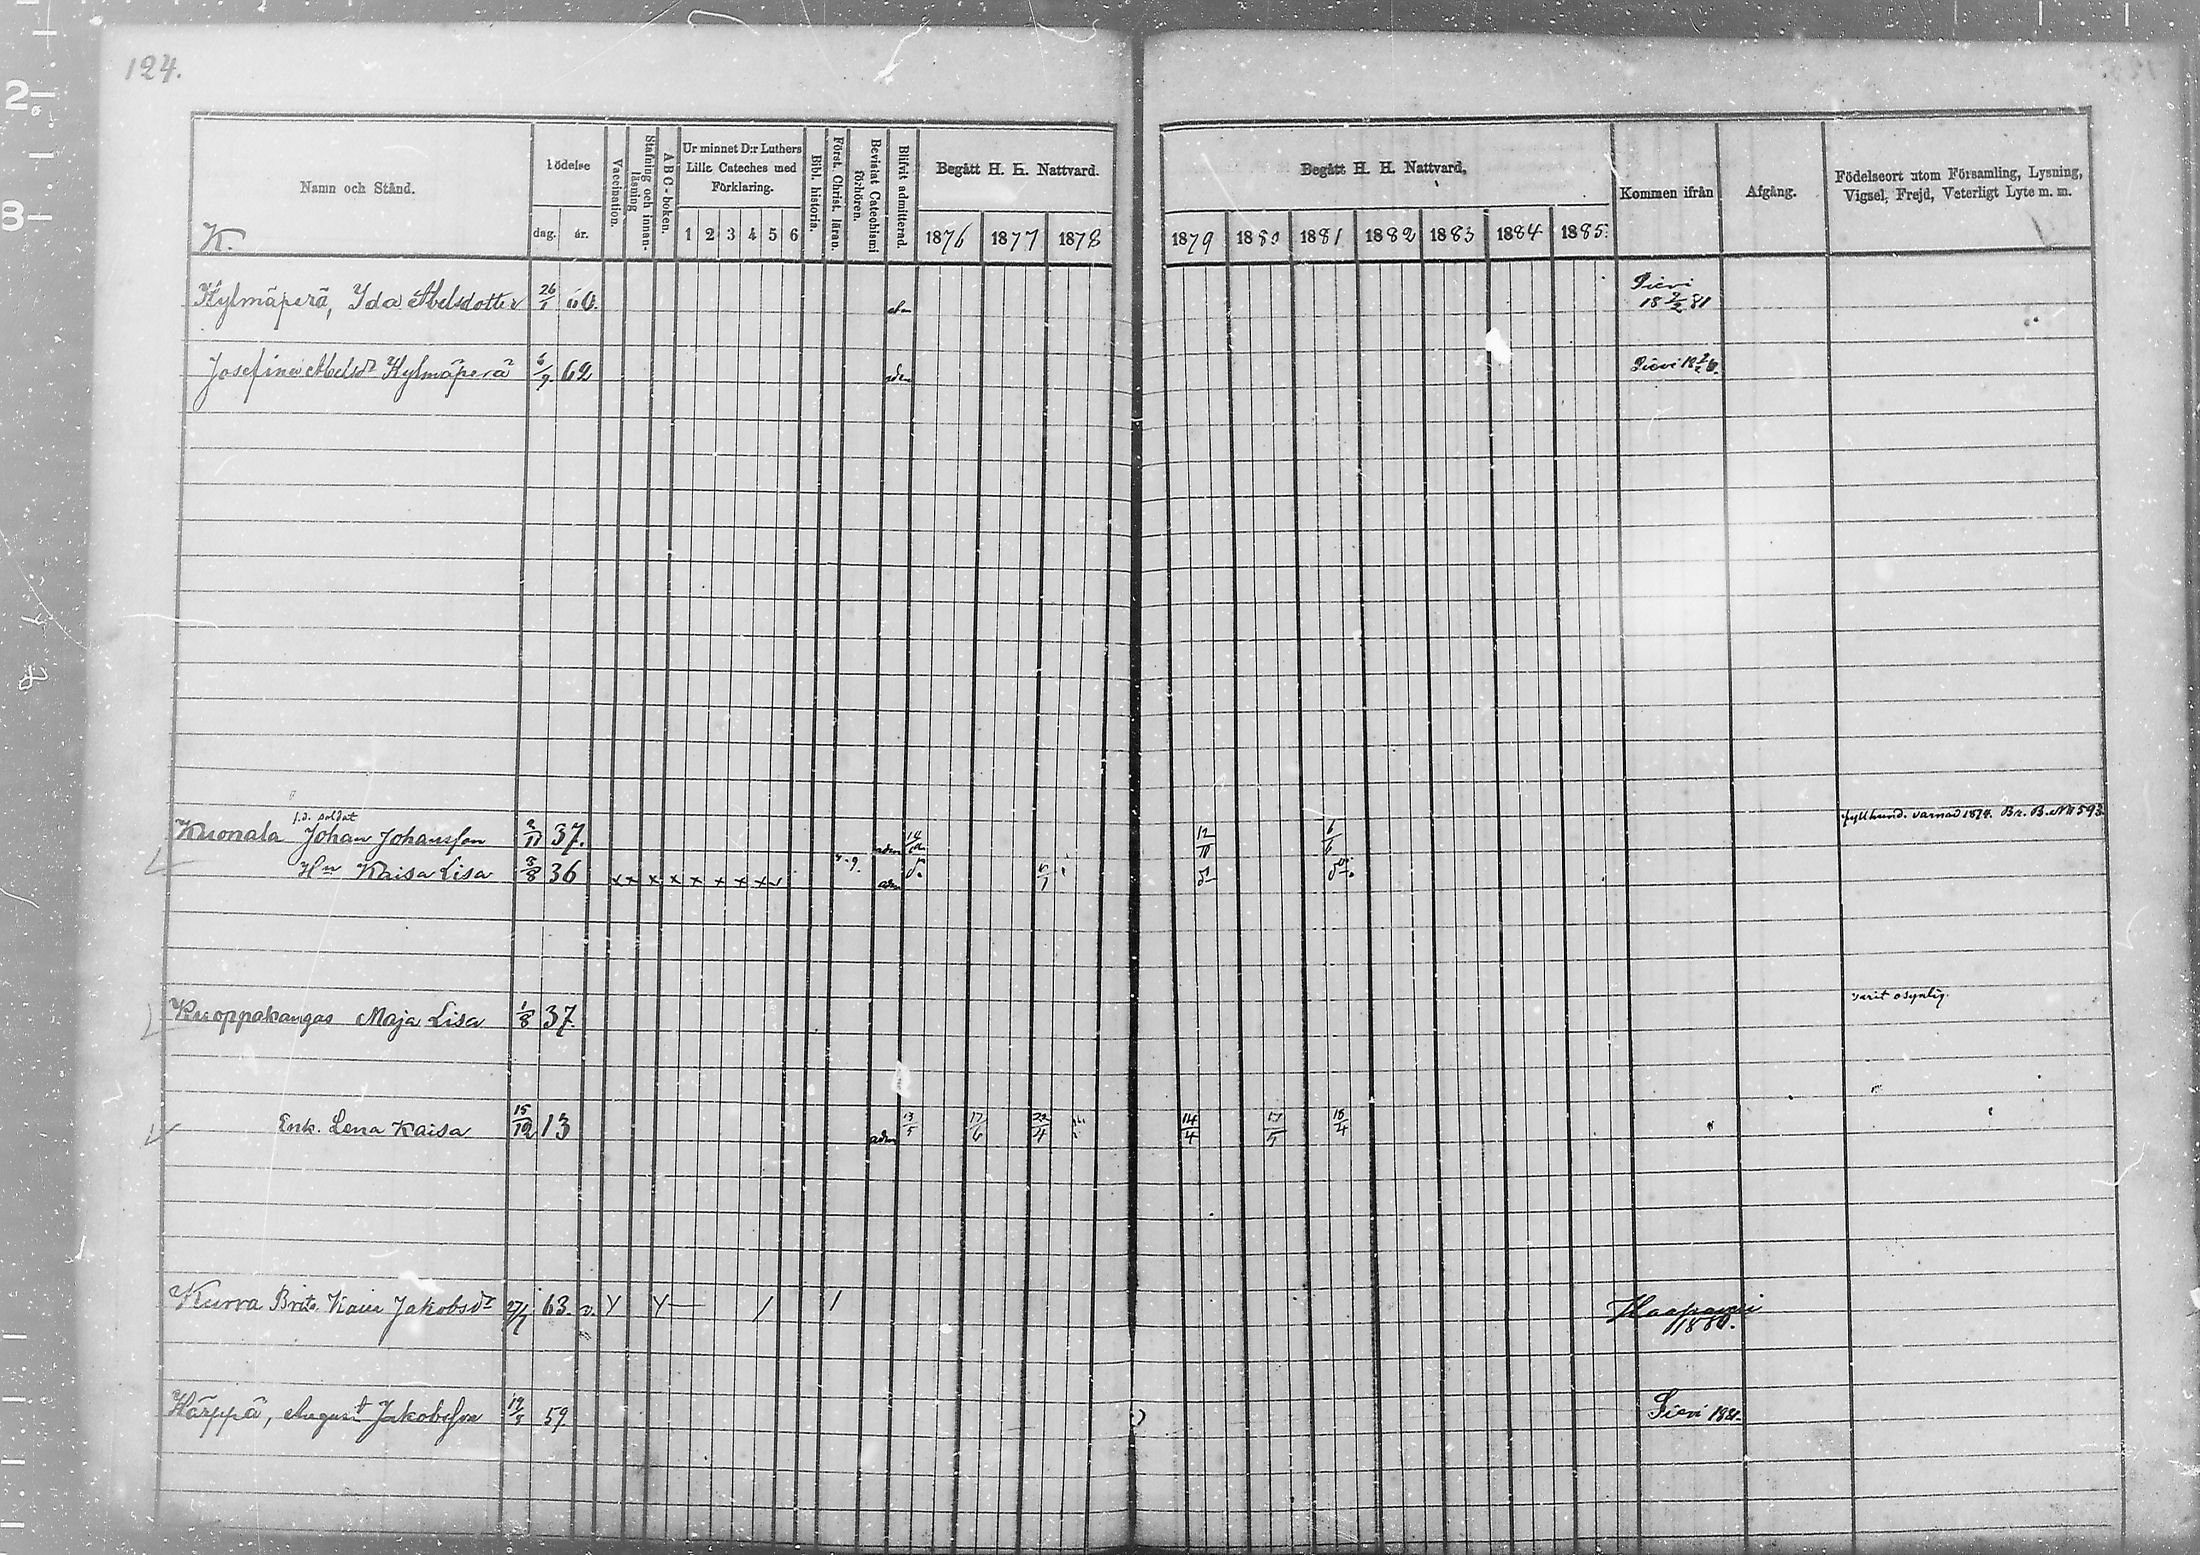 124.
Namn och Stånd.
K.
födelse
dag. år.
Vaccination.
Stafning och innanläsning
ABC-boken.
Ur minnet D:r Luthers Lille Cateches med Förklaring.
1 2 3 4 5 6
Bibl. historia.
Först. Christ. läran.
Bevistat Catechismi förhören.
Blifvit admitterad.
Begått H. H. Nattvard.
1876 1877 1878
Begått H. H. Nattvard.
1879 1880 1881 1882 1883 1884 1885.
Kommen ifrån
Afgång.
Födelseort utom Församling, Lysning, Vigsel, Frejd, Veterligt Lyte m. m.
Kylmäperä, Ida Abelsdotter 26/1 60. Sievi 18 2/2 81
Josefina Abelsdr Kylmäperä 6/9. 62 adm Sievi
f.d. soldat
Kuonala Johan Johansson 2/11 37. adm 12/10 6/6 fyllhund. varnad 1874. Br. B. No 593.
Hu Kaisa Lisa 8/8 36 x x x x x x x x adm
Kuoppakangas Maja Lisa 1/8 37. varit osynlig.
Enk. Lena Kaisa 15/12 13 adm 13/5 17/6 22/4 14/4 17/5 18/4
Kurra Brita Kaisa Jakobsdr 27/1 63. v. Haapajärvi 1880.
Härppä, August Jakobsson 19/5 59 Sievi 1881.